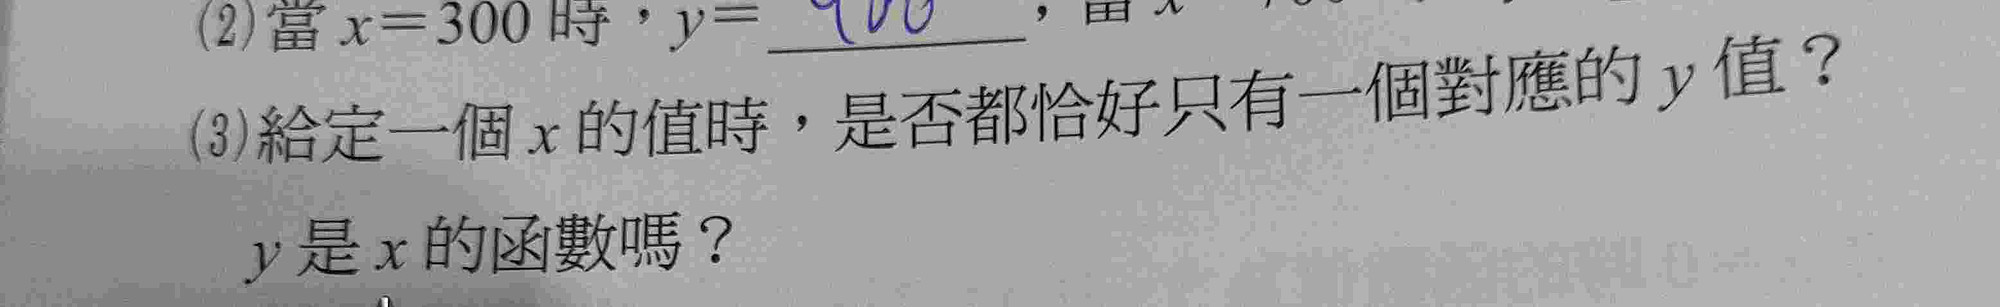 (2)當 x＝300 時，y＝
(3)給定一個 x 的值時，是否都恰好只有一個對應的 y 值？
y 是 x 的函數嗎？